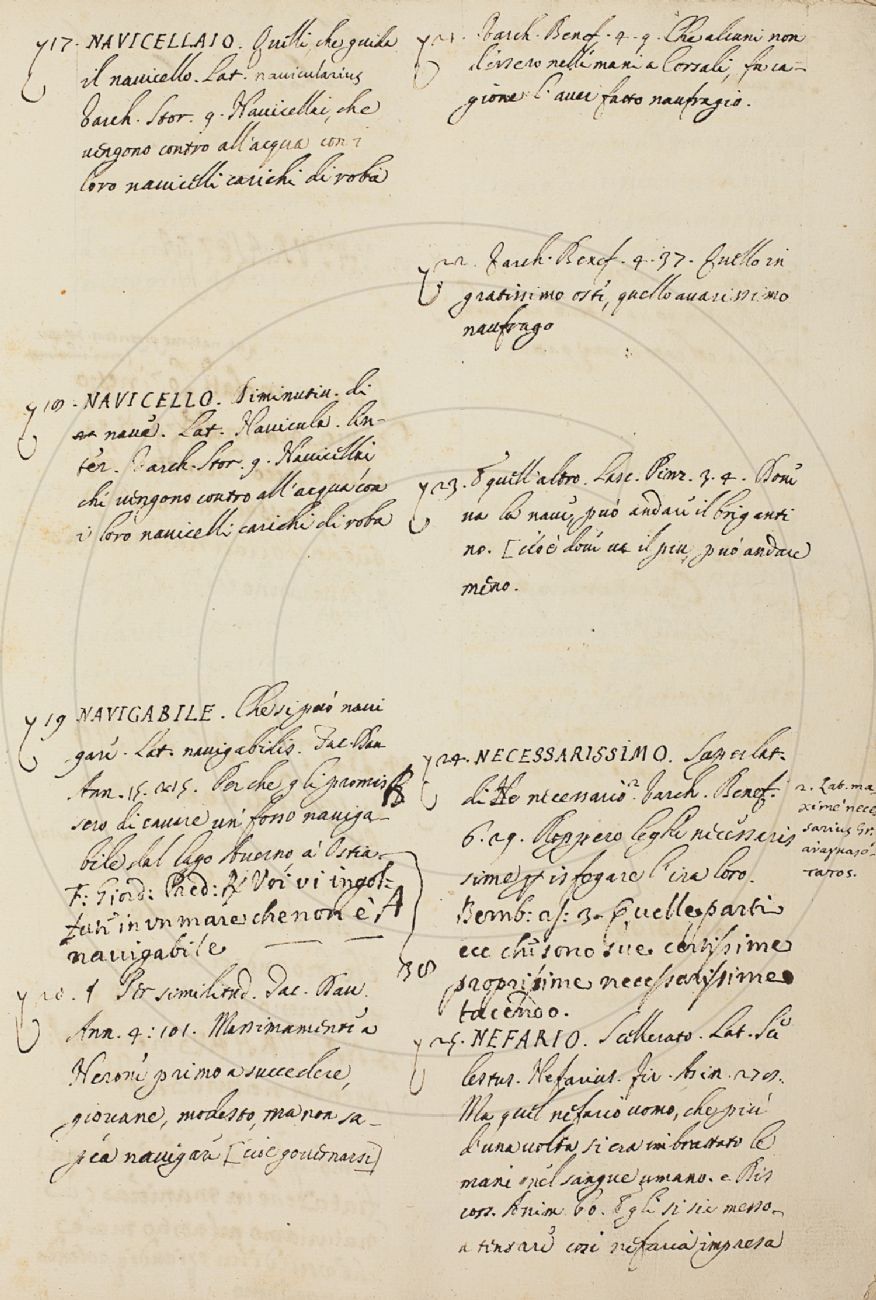 17. NAVICELLAIO. Quelli, che guida
il navicello. Lat. navicularius
Varch. Stor. 9. Navicellai, che
vengono contro all'acqua con i
loro navicelli carichi di roba
18. NAVICELLO. Diminutiv. di
nave. Lat. Navicula. lin-
ter. Varch. Stor. 9. Navicellai
che vengono contro all'acqua con
i loro navicelli carichi di roba
19 NAVIGABILE. Che si può navi
gare. Lat. navigabilis. Tac. Dav.
Ann. 15. 215. Perche gli promes
sero di cavare un fosso naviga-
bile dal lago Averno, a Ostia
F: Giord: Pred: R Voi vi ingol:
fate in un mare che non è A
navigabile
20. Per similitud. Tac. Dav.
Ann. 4: 101. Massimamente a
Nerone primo a succedere,
giovane, modesto, ma non sa-
pea navigare [cioè governarsi]
21. Varch. Benef. 4. 9. Che alcuni non
dessero nelle mani a Corsali, fu ca-
gione l'aver fatto naufragio.
22. Varch. Benef. 4. 37. Quello in
gratissimo oste, quello avarissimo
naufrago
23. E quell'altro. Lasc. Pinz. 3. 4. Dove
va la nave, può andare il briganti
no. [cioè dove va il più, può andare
meno.
24. NECESSARISSIMO. Superlat.
di Necessario 2 Varch. Benef.
6. 29. Roppero leghe necessaris
sime per isfogare l'ira loro.
2. Lat. ma
xime nece
sarius Gr.
Bemb: as: 3. Quelle parti
ecc che sono sue certissime
proprissime necessarissime
tacendo.
38
25. NEFARIO. Scellerato. Lat. Sce
lestus. Nefarius. Fir. Asin. 278.
Ma quel nefario uomo, che più
d'una volta si era imbrattato le
mani nel sangue umano. e Dis
cors. Anim. 60. Egli si sie messo
a tentare così nefaria impresa